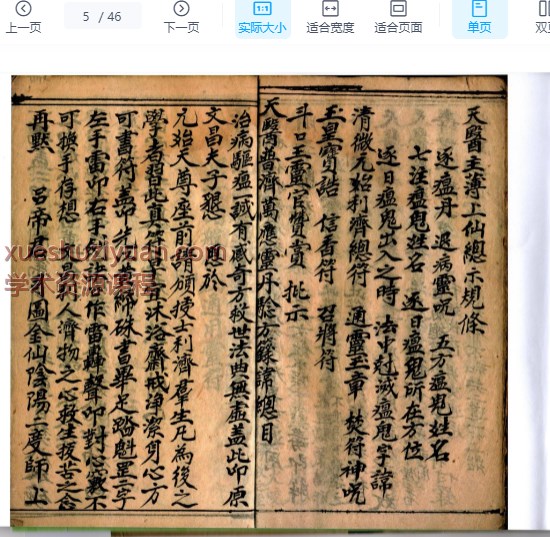 上一页
5 / 46
下一页
实际大小
适合宽度
适合页面
单页
双页
天醫主薄上仙總示規條
逐瘟丹 退病靈呪 五方瘟鬼姓名
七注瘟鬼姓名 逐日瘟鬼所在方位
逐日瘟鬼出入之時 法中尅滅瘟鬼字諱
清微元始利濟總符 通靈玉章 焚符神呪
玉皇寳誥 信香符 召將符
斗口王靈官贊賞 批示
天醫普濟萬應靈丹騐方籙諱總目
治病驅瘟誠有感奇方救世法典無虛蓋此印原
文昌夫子懇 於
元始天尊座前請頒授士利濟羣生凡為後之
學者習此真 宜沐浴齋戒淨潔身心方
可書符盖印 硃書畢足踏魁罡二字
左手雷印右手 作雷霹聲叩對心義不
可換手存想 利人濟物之心救生援苦之念
再默 呂帝 圖金仙陰陽二度師上
xueshuziyuan.com
学术资源课程